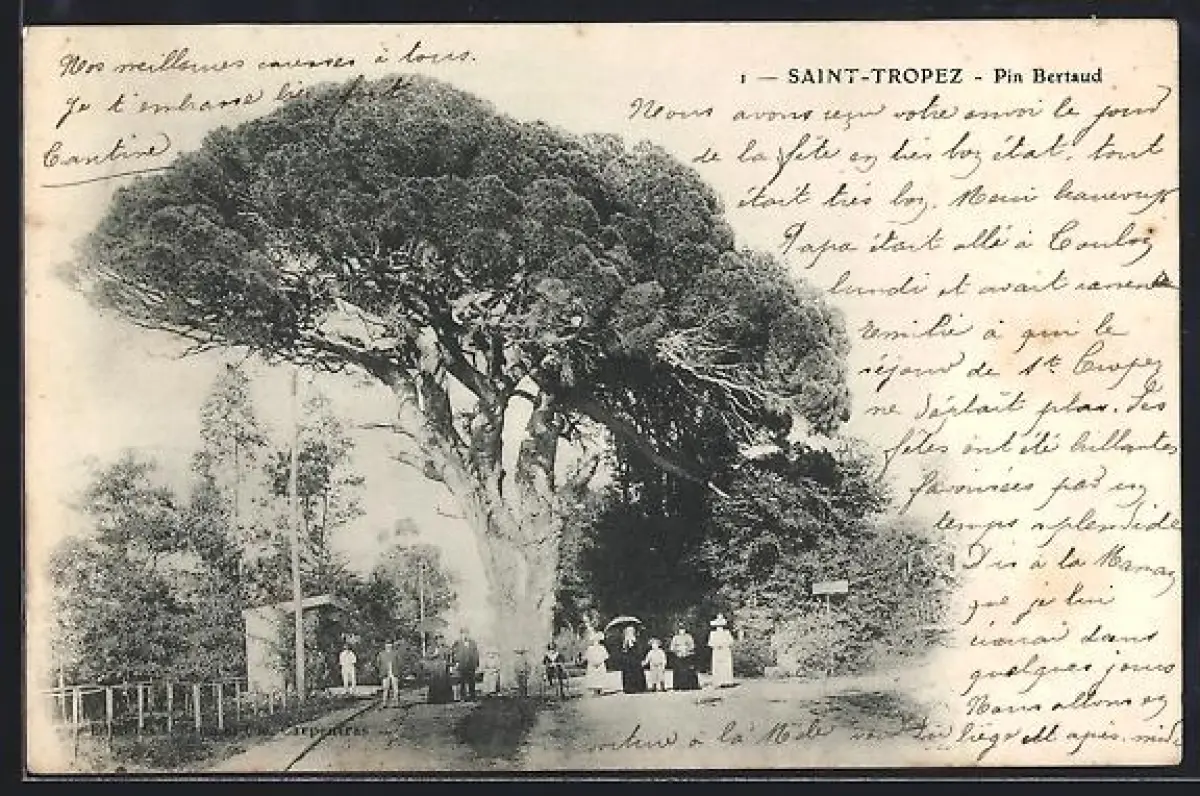 1 — SAINT-TROPEZ - Pin Bertaud
Nos meilleures caresses à tous.
Je t'embrasse bien fort
Nous avons reçu votre envoi le jour
de la fête en très bon état. tout
était très bon. Merci beaucoup
Papa était allé à
lundi et avait
Emilie à qui le
séjour de St. Tropez
ne déplait plus. Les
fêtes ont été brillantes
favorisées par un
temps splendide
Dis à la
que je lui
dans
quelques jours
Nous allons en
à la Môle cet après midi
Carpentras